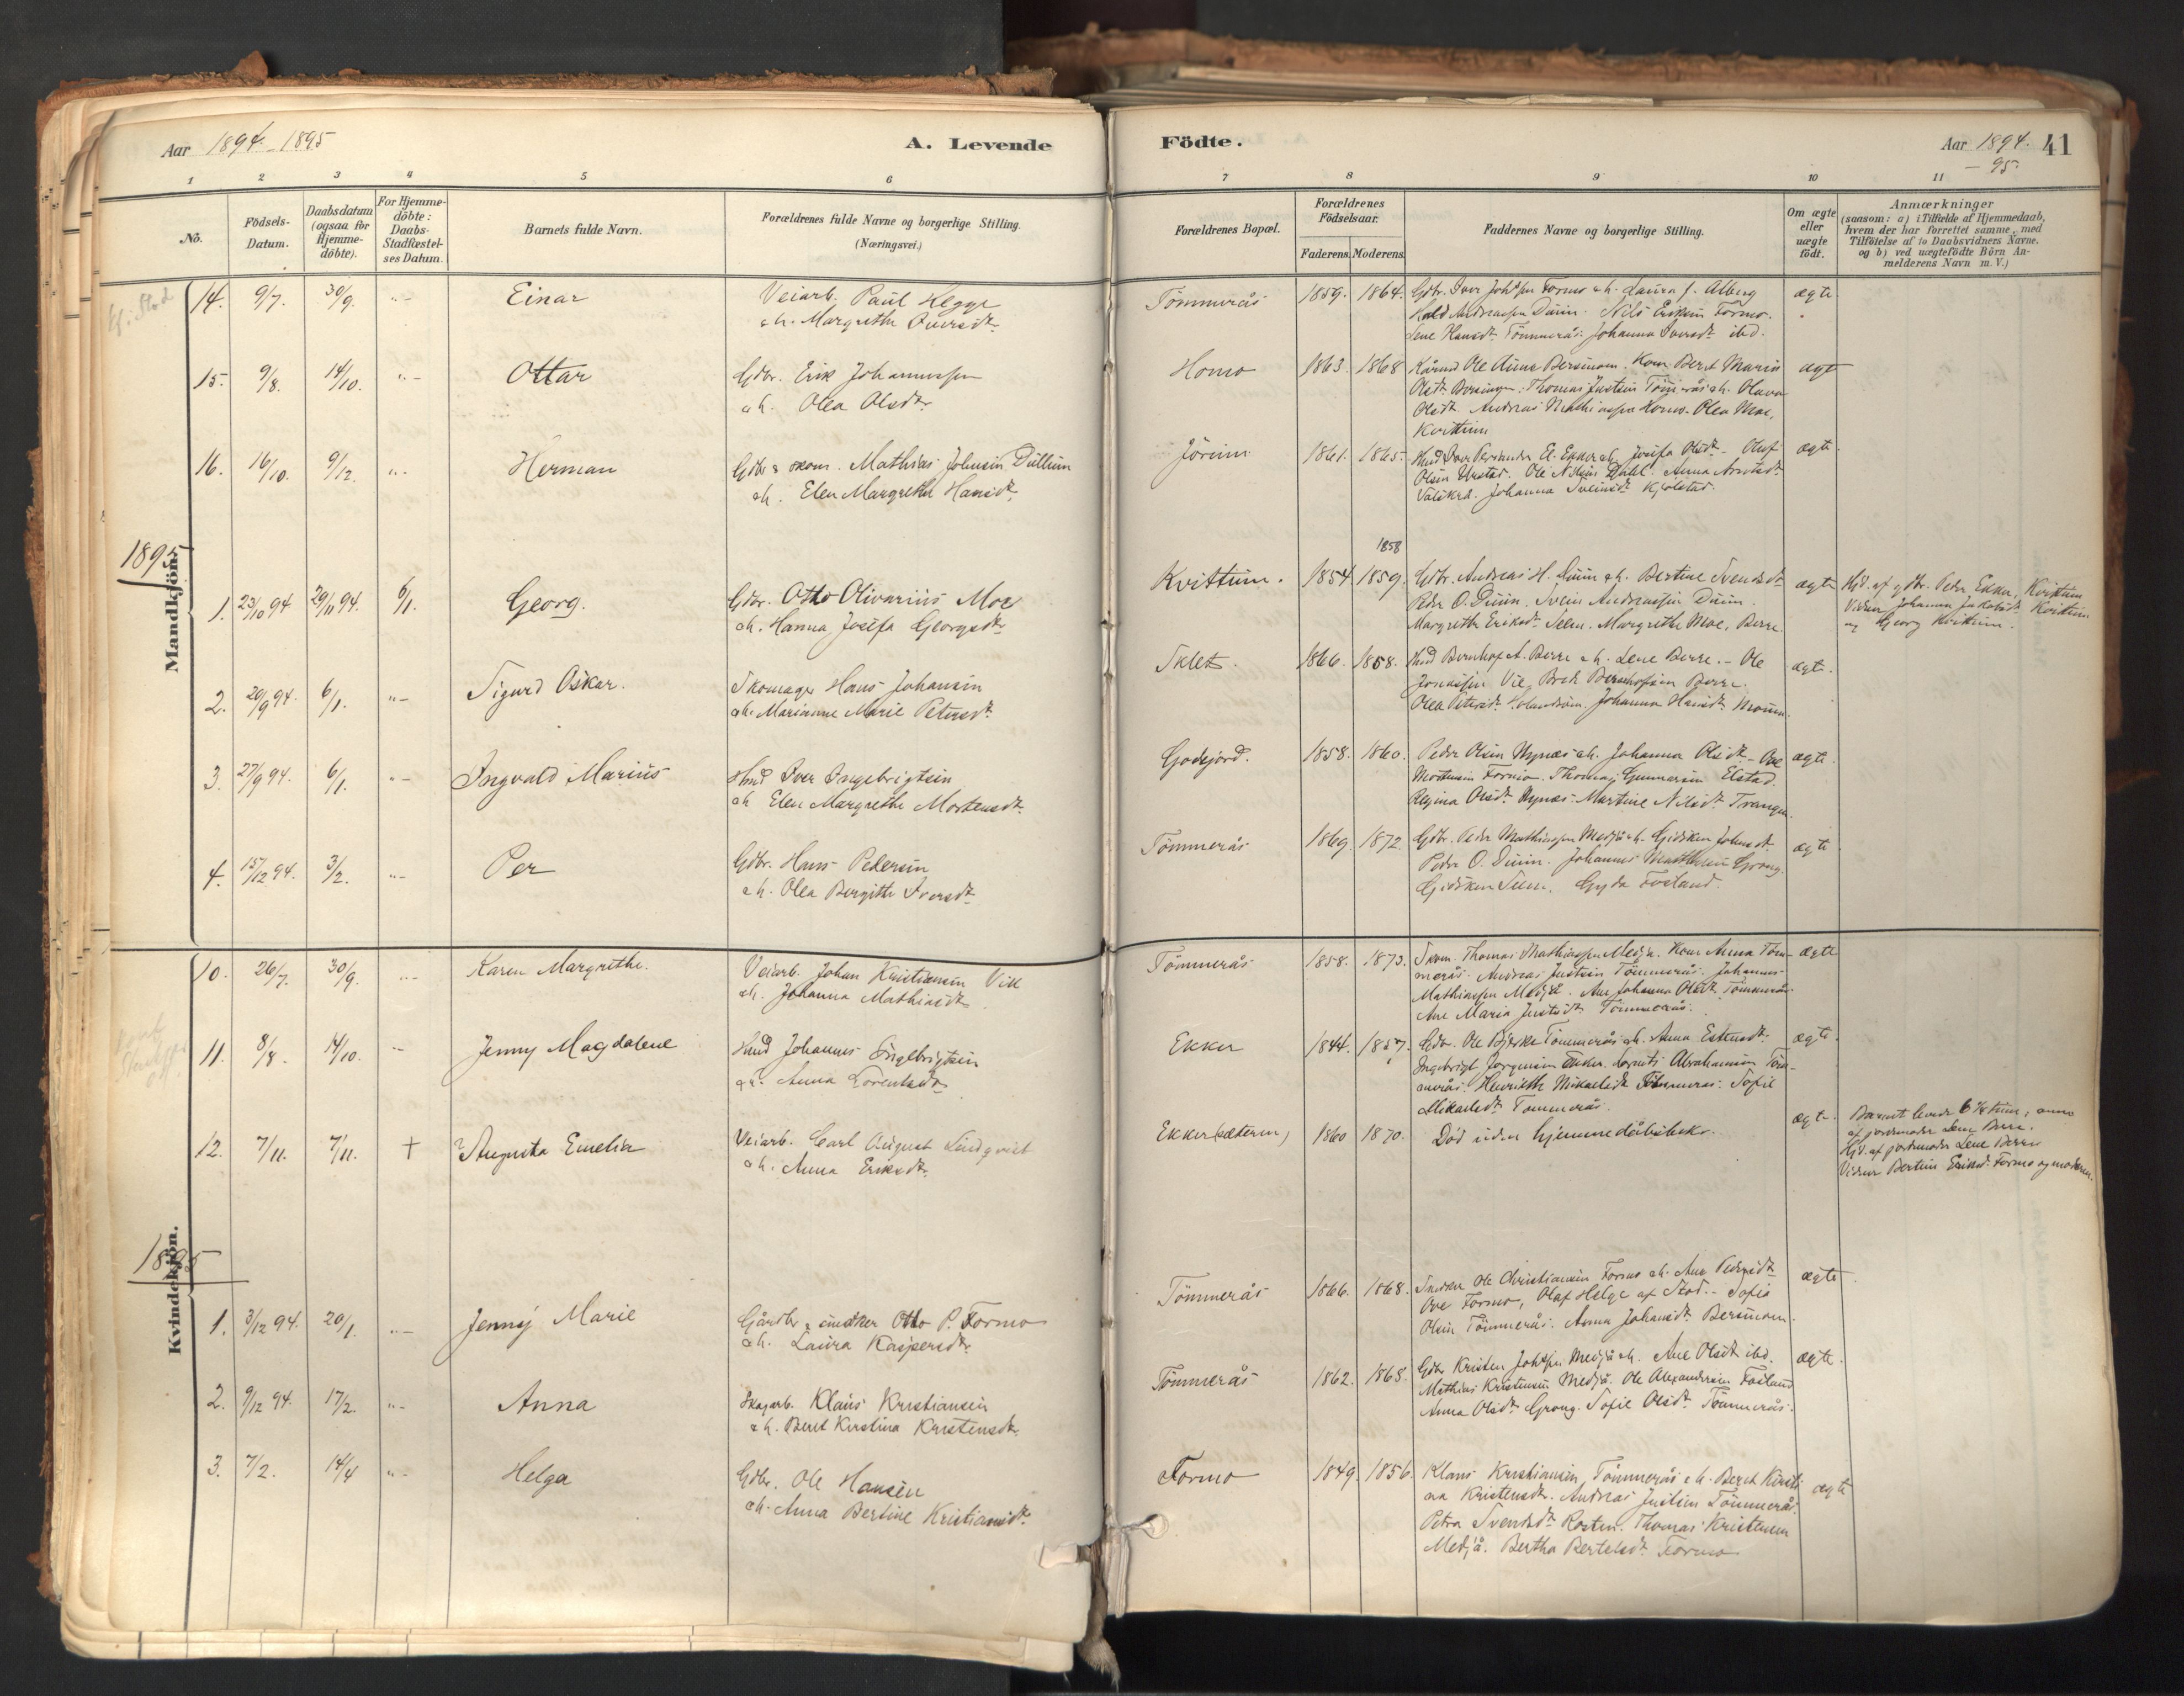 Aar 1894-1895
A. Levende
Födte.
Aar 1894.
- 95.
41
1 2 3 4 5 6 7 8 9 10 11
No.
Födsels-
Datum.
Daabsdatum
(ogsaa for
Hjemme-
döbte).
For Hjemme-
döbte:
Daabs-
Stadfæstel-
ses Datum.
Barnets fulde Navn.
Forældrenes fulde Navne og borgerlige Stilling.
(Næringsvei.)
Forældrenes Bopæl.
Forældrenes
Födselsaar.
Faderens. Moderens.
Faddernes Navne og borgerlige Stilling.
Om ægte
eller
uægte
födt.
Anmærkninger
(saasom: a) i Tilfælde af Hjemmedaab,
hvem der har forrettet samme, med
Tilföielse af to Daabsvidners Navne.
og b) ved uægtefödte Börn An-
melderens Navn m. V.)
Mandkjön.
14. 9/7. 30/9. "- Einar
Veiarb. Paul Hegge
ah. Margrethe Iversdt.
Tömmerås 1859. 1864.
Gdbr. Iver Johssen Formo ah. Laura J. Alberg
Andreassen Duun. Nils Eriksen Formo.
Lene Hansdt. Tömmerås. Johanna Iversdt. ibd.
ægte.
15. 9/8. 14/10. "- Ottar
Gdbr. Erik Johannessen
ah. Olea Olsdt.
Homo 1863. 1868
Kårmd Ole Aune Bersmoen. Kone Beret Marie
Olsdt. Thomas Justsen Tömmerås ah. Olava
Olsdt. Andreas Mathiassen Homo. Olea Moe,
Kvittum
ægte
16. 16/10. 9/12. "- Herman
Gdbr & skom. Mathias Johnsen Dullum
ah. Elen Margrethe Hansdt.
Jörum 1861. 1865.
Josefa Olsdt. - Oluf
Olsen Urstad. Ole Nilsen Dahl. Anna Arntsdt.
Valskrå. Johanna Sveinsdt. Kjolstad.
ægte.
1895
1. 23/10 94 29/11 94. 6/1. Georg.
Gdbr. Otto Olivarius Moe
ah. Hanna Josefa Georgsdt.
Kvittum. 1854. 1859. 1858
Gdbr. Andreas H. Duun ah. Bertine Svendsdt.
Peder O. Duun. Svein Andreassen Duun.
Margrethe Eriksdt. Seem. Margrethe Moe, Berre.
ægte
Hjd. af gdbr. Peder Ekker, Kvittum
Vidner Johanna Jakobsdt. Kvittum
og Georg Kvittum.
2. 29/9 94. 6/1. "- Sigurd Oskar.
Skomager Hans Johansen
ah. Marianne Marie Petersdt.
Sklet. 1866. 1858.
Hmd Bernhof A. Berre ah. Lene Berre. - Ole
Jonassen Vie, Bernhofsen Berre.
Olea Petersdt. Johanna Hansdt. Moum.
ægte.
3. 27/9 94. 6/1. "- Ingvald Marius
Hmd Iver Ingebrigtsen
ah Elen Margrethe Mortensdt.
Godejord. 1858. 1860.
Peder Olsen Nynæs ah. Johanna Olsdt. - Ove
Mortensen Formo. Thomas Gunnersen Elstad.
Regina Olsdt. Nynæs. Martine Nilsdt. Trangen.
ægte.
4. 15/12 94. 3/2. "- Per
Gdbr. Hans Pedersen
ah. Olea Bergitte Iversdt.
Tömmerås 1869. 1872.
Gdbr. Peder Mathiassen Medjå ah. Gidsken Johnsdt.
Peder O. Duun. Johannes Mathisen Grong.
Gidsken Seem. Gyda Fosland.
ægte
Kvindekjön.
10. 26/7. 30/9. "- Karen Margrethe.
Veiarb. Johan Kristiansen Vie
ah. Johanna Mathiasdt.
Tömmerås 1858. 1873.
Skom. Thomas Mathiassen Medjå. Kone Anna Töm-
merås. Andreas Justsen Tömmerås. Johannes
Mathiassen Medjå. Ane Johanna Olsdt. Tömmerås.
Ane Maria Justsdt. Tömmerås.
ægte
11. 8/8. 14/10. "- Jenny Magdalene
Hmd Johannes Ingebrigtsen
ah. Anna Lorentsdt.
Ekker 1844. 1857.
Gdbr. Ole Bjerke Tömmerås ah. Anna Estensdt.
Ingebrigt Jörgensen Ekker. Lornts Abrahamsen Töm-
merås. Henriette Mikaelsdt. Tömmerås. Sofie
Mikaelsdt. Tömmerås.
ægte.
12. 7/11. 7/11. † Augusta Emelia
Veiarb. Carl August Lindqvist
ah. Anna Eriksdt.
Ekker(sæteren) 1860 1870.
Död uden hjemmedåbsbekr.
ægte.
Barnet levede 6
af jordmoder Lene Berre.
Hjd. af jordmoder Lene Berre
Vidner Bertine Eriksdt. Formo og moderen.
1895
1. 3/12 94. 20/1. "- Jenny Marie
Gårdbr & snedker Otto P. Formo
ah. Laura Kaspersdt.
Tömmerås 1866. 1868.
Snedker Ole Christiansen Formo ah. Ane Pedersdt.
Ove Formo, Olaf Helge af Stod. - Sofie
Olsen Tömmerås. Anna Johansdt. Bersmoen.
ægte.
2. 9/12 94. 17/2. "- Anna
Skogarb. Klaus Kristiansen
ah. Beret Kirstina Kristensdt.
Tömmerås 1862. 1868.
Gdbr. Kristen Johssen Medjå ah. Ane Olsdt. ibd.
Mathias Kristensen Medjå. Ole Alexandersen Fosland
Anna Olsdt. Grong. Sofie Olsdt. Tömmerås.
ægte.
3. 7/2. 14/4 "- Helga
Gdbr. Ole Hansen
ah. Anna Bertine Kristiansdt.
Formo 1849. 1856.
Klaus Kristiansen, Tömmerås ah. Beret Kirsti-
na Kristensdt. Andreas Justsen Tömmerås.
Petra Svendsdt. Rosten. Thomas Kristensen
Medjå. Bertha Bertelsdt. Formo
ægte